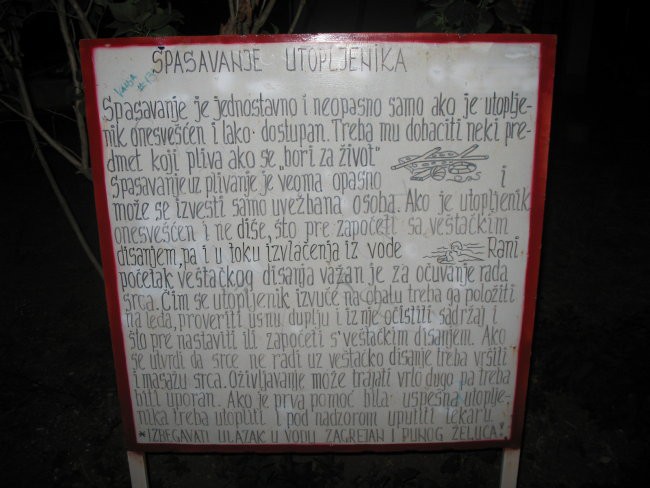 SPASAVANJE UTOPLJENIKA
Spasavanje je jednostavno i neopasno samo ako je utoplje-
nik onesvešćen i lako dostupan. Treba mu dobaciti neki pre-
dmet koji pliva ako se „bori za život"
Spasavanje uz plivanje je veoma opasno i
može se izvesti samo uvežbana osoba. Ako je utopljenik
onesvešćen i ne diše, što pre započeti sa veštačkim
disanjem, pa i u toku izvlačenja iz vode Rani
početak veštačkog disanja važan je za očuvanje rada
srca. Čim se utopljenik izvuče na obalu treba ga položiti
na leđa, proveriti usnu duplju i iz nje očistiti sadržaj i
što pre nastaviti ili započeti s veštačkim disanjem. Ako
se utvrdi da srce ne radi uz veštačko disanje treba vršiti
i masažu srca. Oživljavanje može trajati vrlo dugo pa treba
biti uporan. Ako je prva pomoć bila uspešna utoplje-
nika treba utopliti i pod nadzorom uputiti lekaru.
*IZBEGAVATI ULAZAK U VODU ZAGREJAN I PUNOG ŽELUCA!